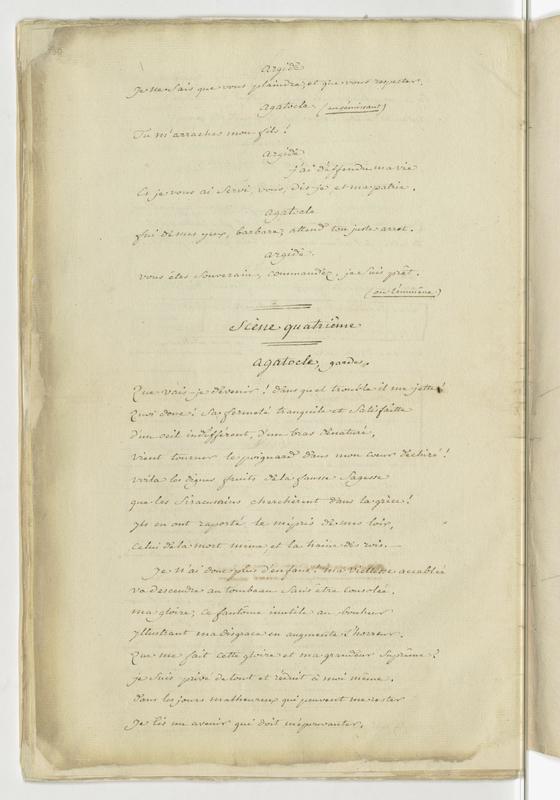 argide
Je ne sais que vous plaindre, et que vous respecter.
agatocle (en gémissant)
Tu m'arraches mon fils!
argide
j'ai déffendu ma vie
Et je vous ai servi, vous, dis-je et ma patrie.
agatocle
fui de mes yeux, barbare, attend ton juste arrot.
argide.
vous étes souverain, commandéz, je suis prêt.
(on l'emméne)
Scène quatrième
agatocle, gardes.
Que vais-je devenir! dans quel trouble il me jette!
Quoi donc! sa fermeté tranquile et satisfaitte
d'un oeil indifférent, d'un bras dénaturé,
vient tourner le poignard dans mon coeur déchiré!
voila les dignes fruits de la fausse sagesse
que les Siracusains cherchèrent dans la grèce!
Ils en ont raporté le mépris de mes loix,
celui de la mort même et la haine des rois.
Je n'ai donc plus d'enfans! ma vieillesse accablée
va descendre au tombeau sans être consolée.
ma gloire, ce fantôme inutile au bonheur
yllustrant ma disgrace en augmente l'horreur.
Que me fait cette gloire et ma grandeur suprême?
je suis privé de tout et réduit à moi même.
dans les jours malheureux qui peuvent me rester
Je lis un avenir qui doit m'épouvanter.